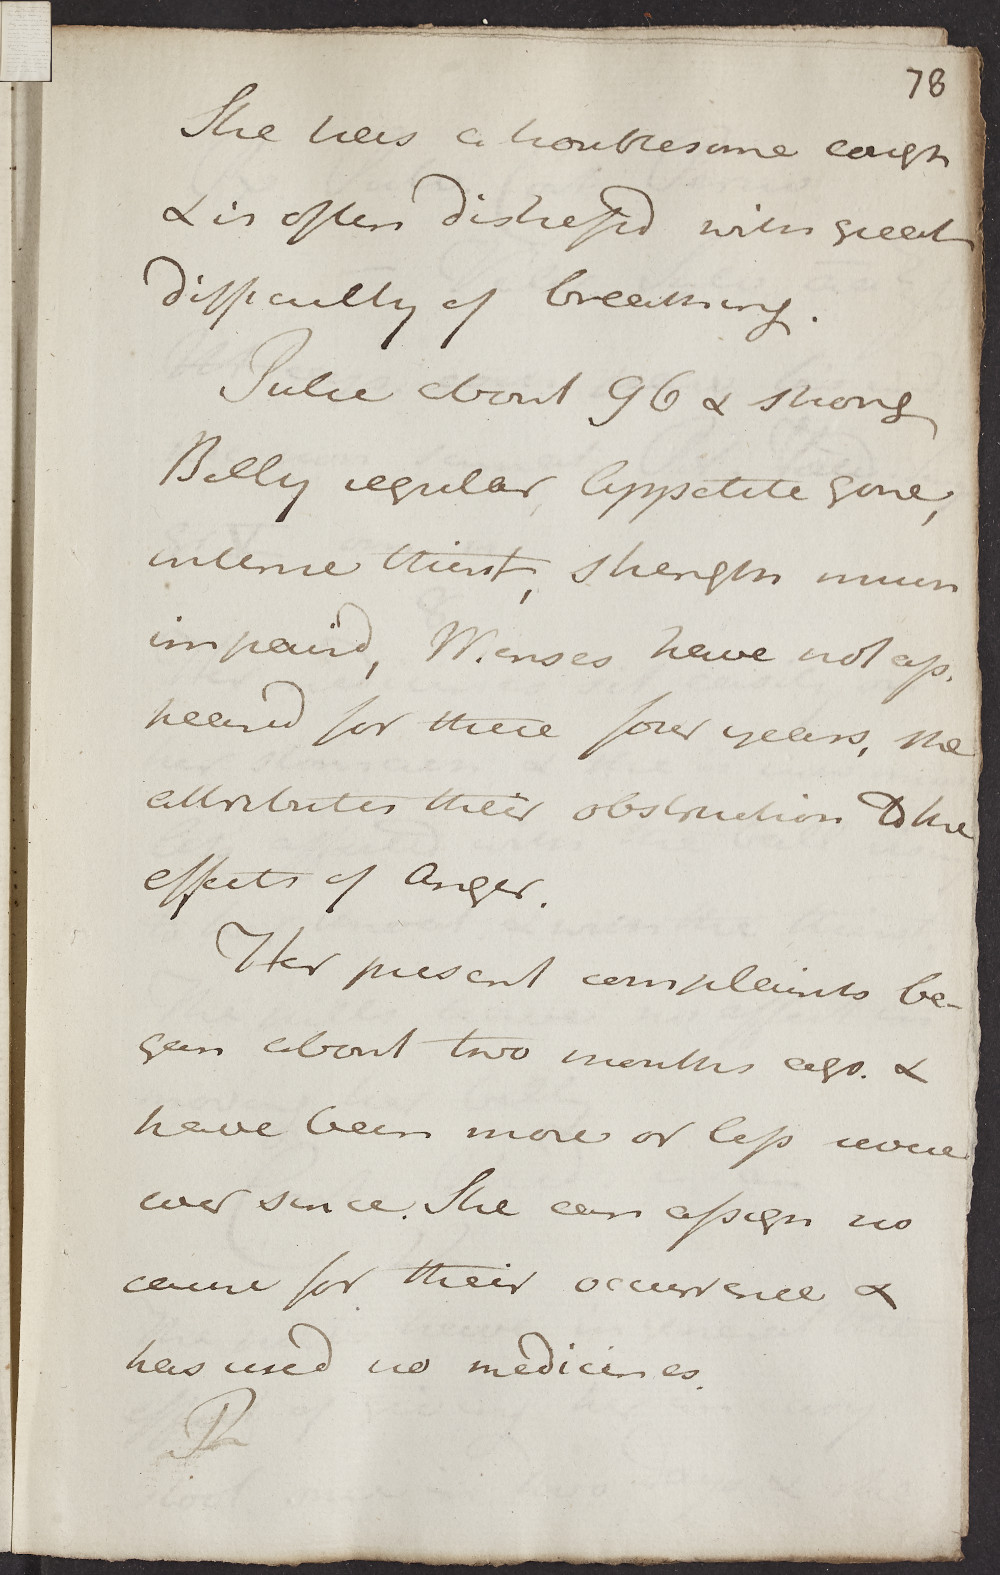 78
She has a troublesome cough
& is often distressd with great
difficulty of breathing.
Pulse about 96 & strong
Belly regular, Appetite gone,
intense thirst, strength much
impaird, Menses have not ap-
peared for these four years, she
attributes their obstruction to the
effects of Anger.
Her present complaints be-
gan about two months ago. &
have been more or less severe
ever since. She can assign no
cause for their occurrence &
has used no medicines.
R